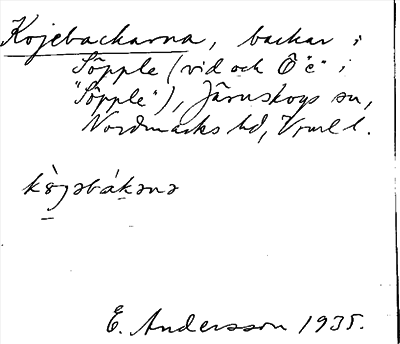 Kojebackarna, backar i
Söpple (vid och Ö "c" i
"Söpple"), Järnskogs sn,
Nordmarks hd, Vrml l.
kòjəbákəna
E. Andersson 1935.